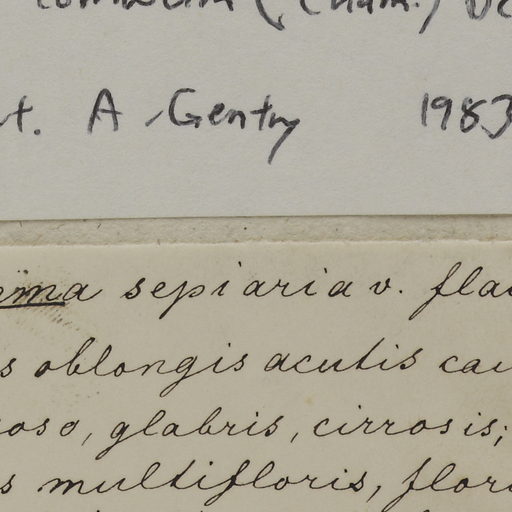 (Cham.) DC
t. A Gentry 1983
ema sepiaria v. flav
s oblongis acutis cau
oso, glabris, cirrosis;
s multifloris, flori